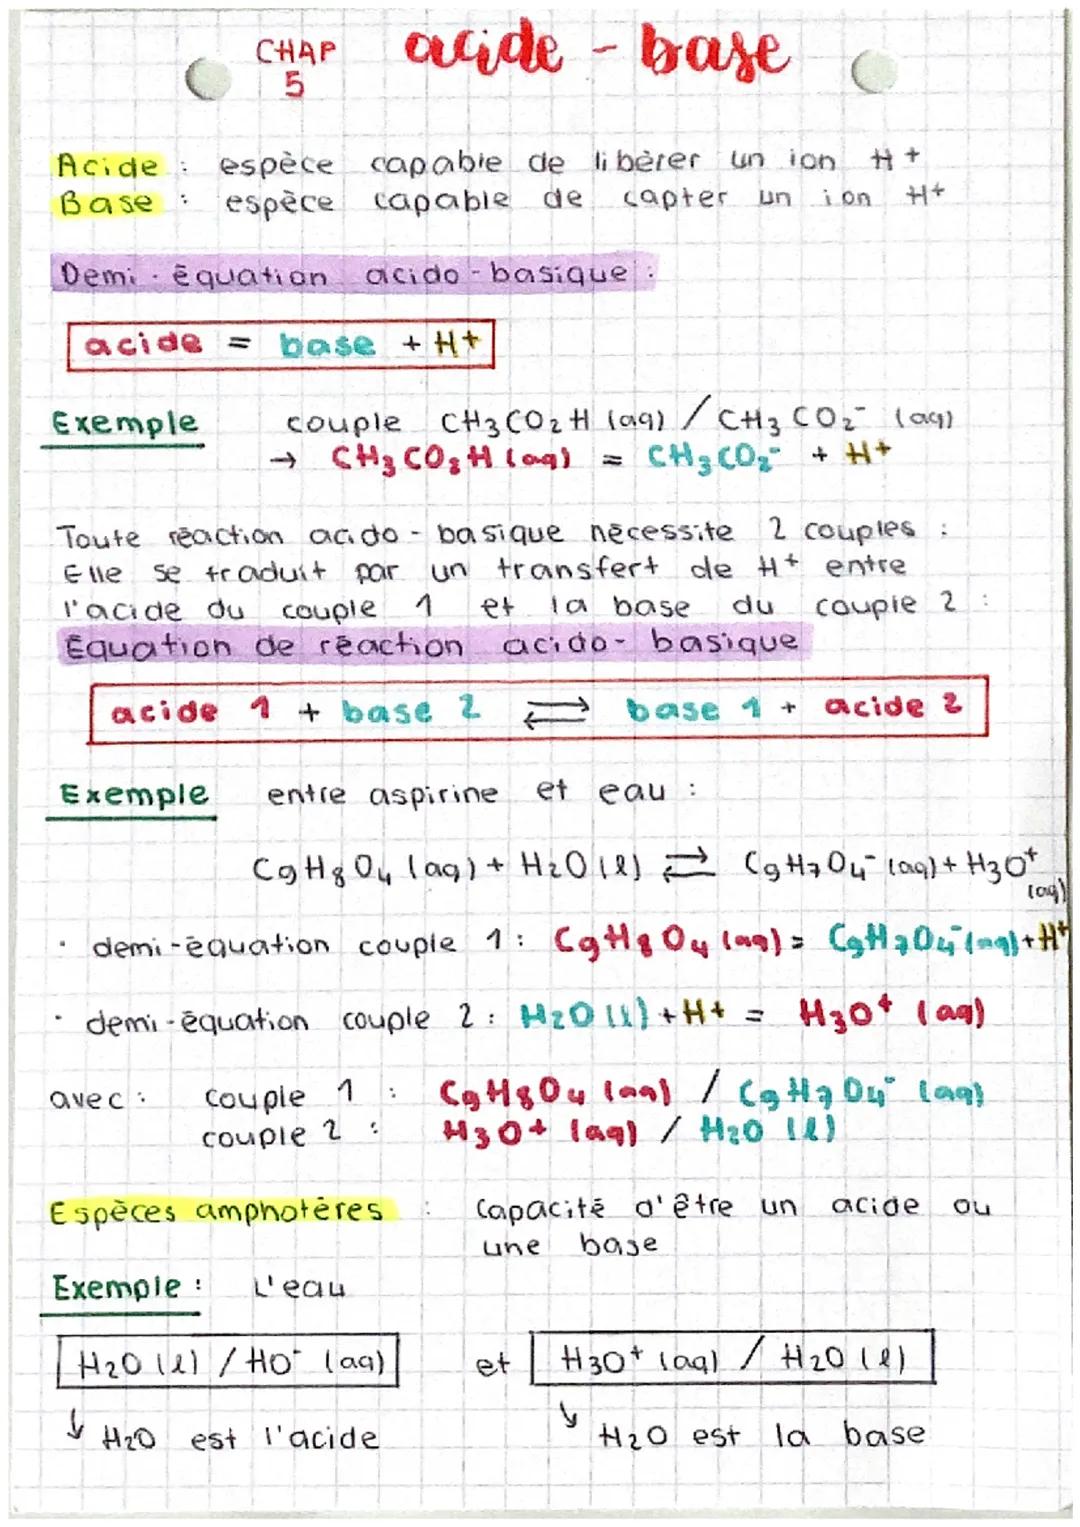 CHAP 5 acide - base
Acide : espèce capable de libérer un ion H+
Base : espèce capable de capter un ion H+
Demi-équation acido-basique :
acide = base + H+
Exemple couple CH3CO2H (aq) / CH3CO2⁻ (aq)
→ CH3CO2H (aq) = CH3CO2⁻ + H+
Toute réaction acido-basique nécessite 2 couples :
Elle se traduit par un transfert de H+ entre
l'acide du couple 1 et la base du couple 2 :
Équation de réaction acido-basique
acide 1 + base 2 ⇄ base 1 + acide 2
Exemple entre aspirine et eau :
C9H8O4 (aq) + H2O (l) ⇄ C9H7O4⁻ (aq) + H3O⁺ (aq)
· demi-équation couple 1 : C9H8O4 (aq) = C9H7O4⁻ (aq) + H+
· demi-équation couple 2 : H2O (l) + H+ = H3O+ (aq)
avec : couple 1 : C9H8O4 (aq) / C9H7O4⁻ (aq)
couple 2 : H3O+ (aq) / H2O (l)
Espèces amphotères : Capacité d'être un acide ou
une base
Exemple : L'eau
H2O (l) / HO⁻ (aq) et H3O+ (aq) / H2O (l)
↓ H2O est l'acide ↓ H2O est la base